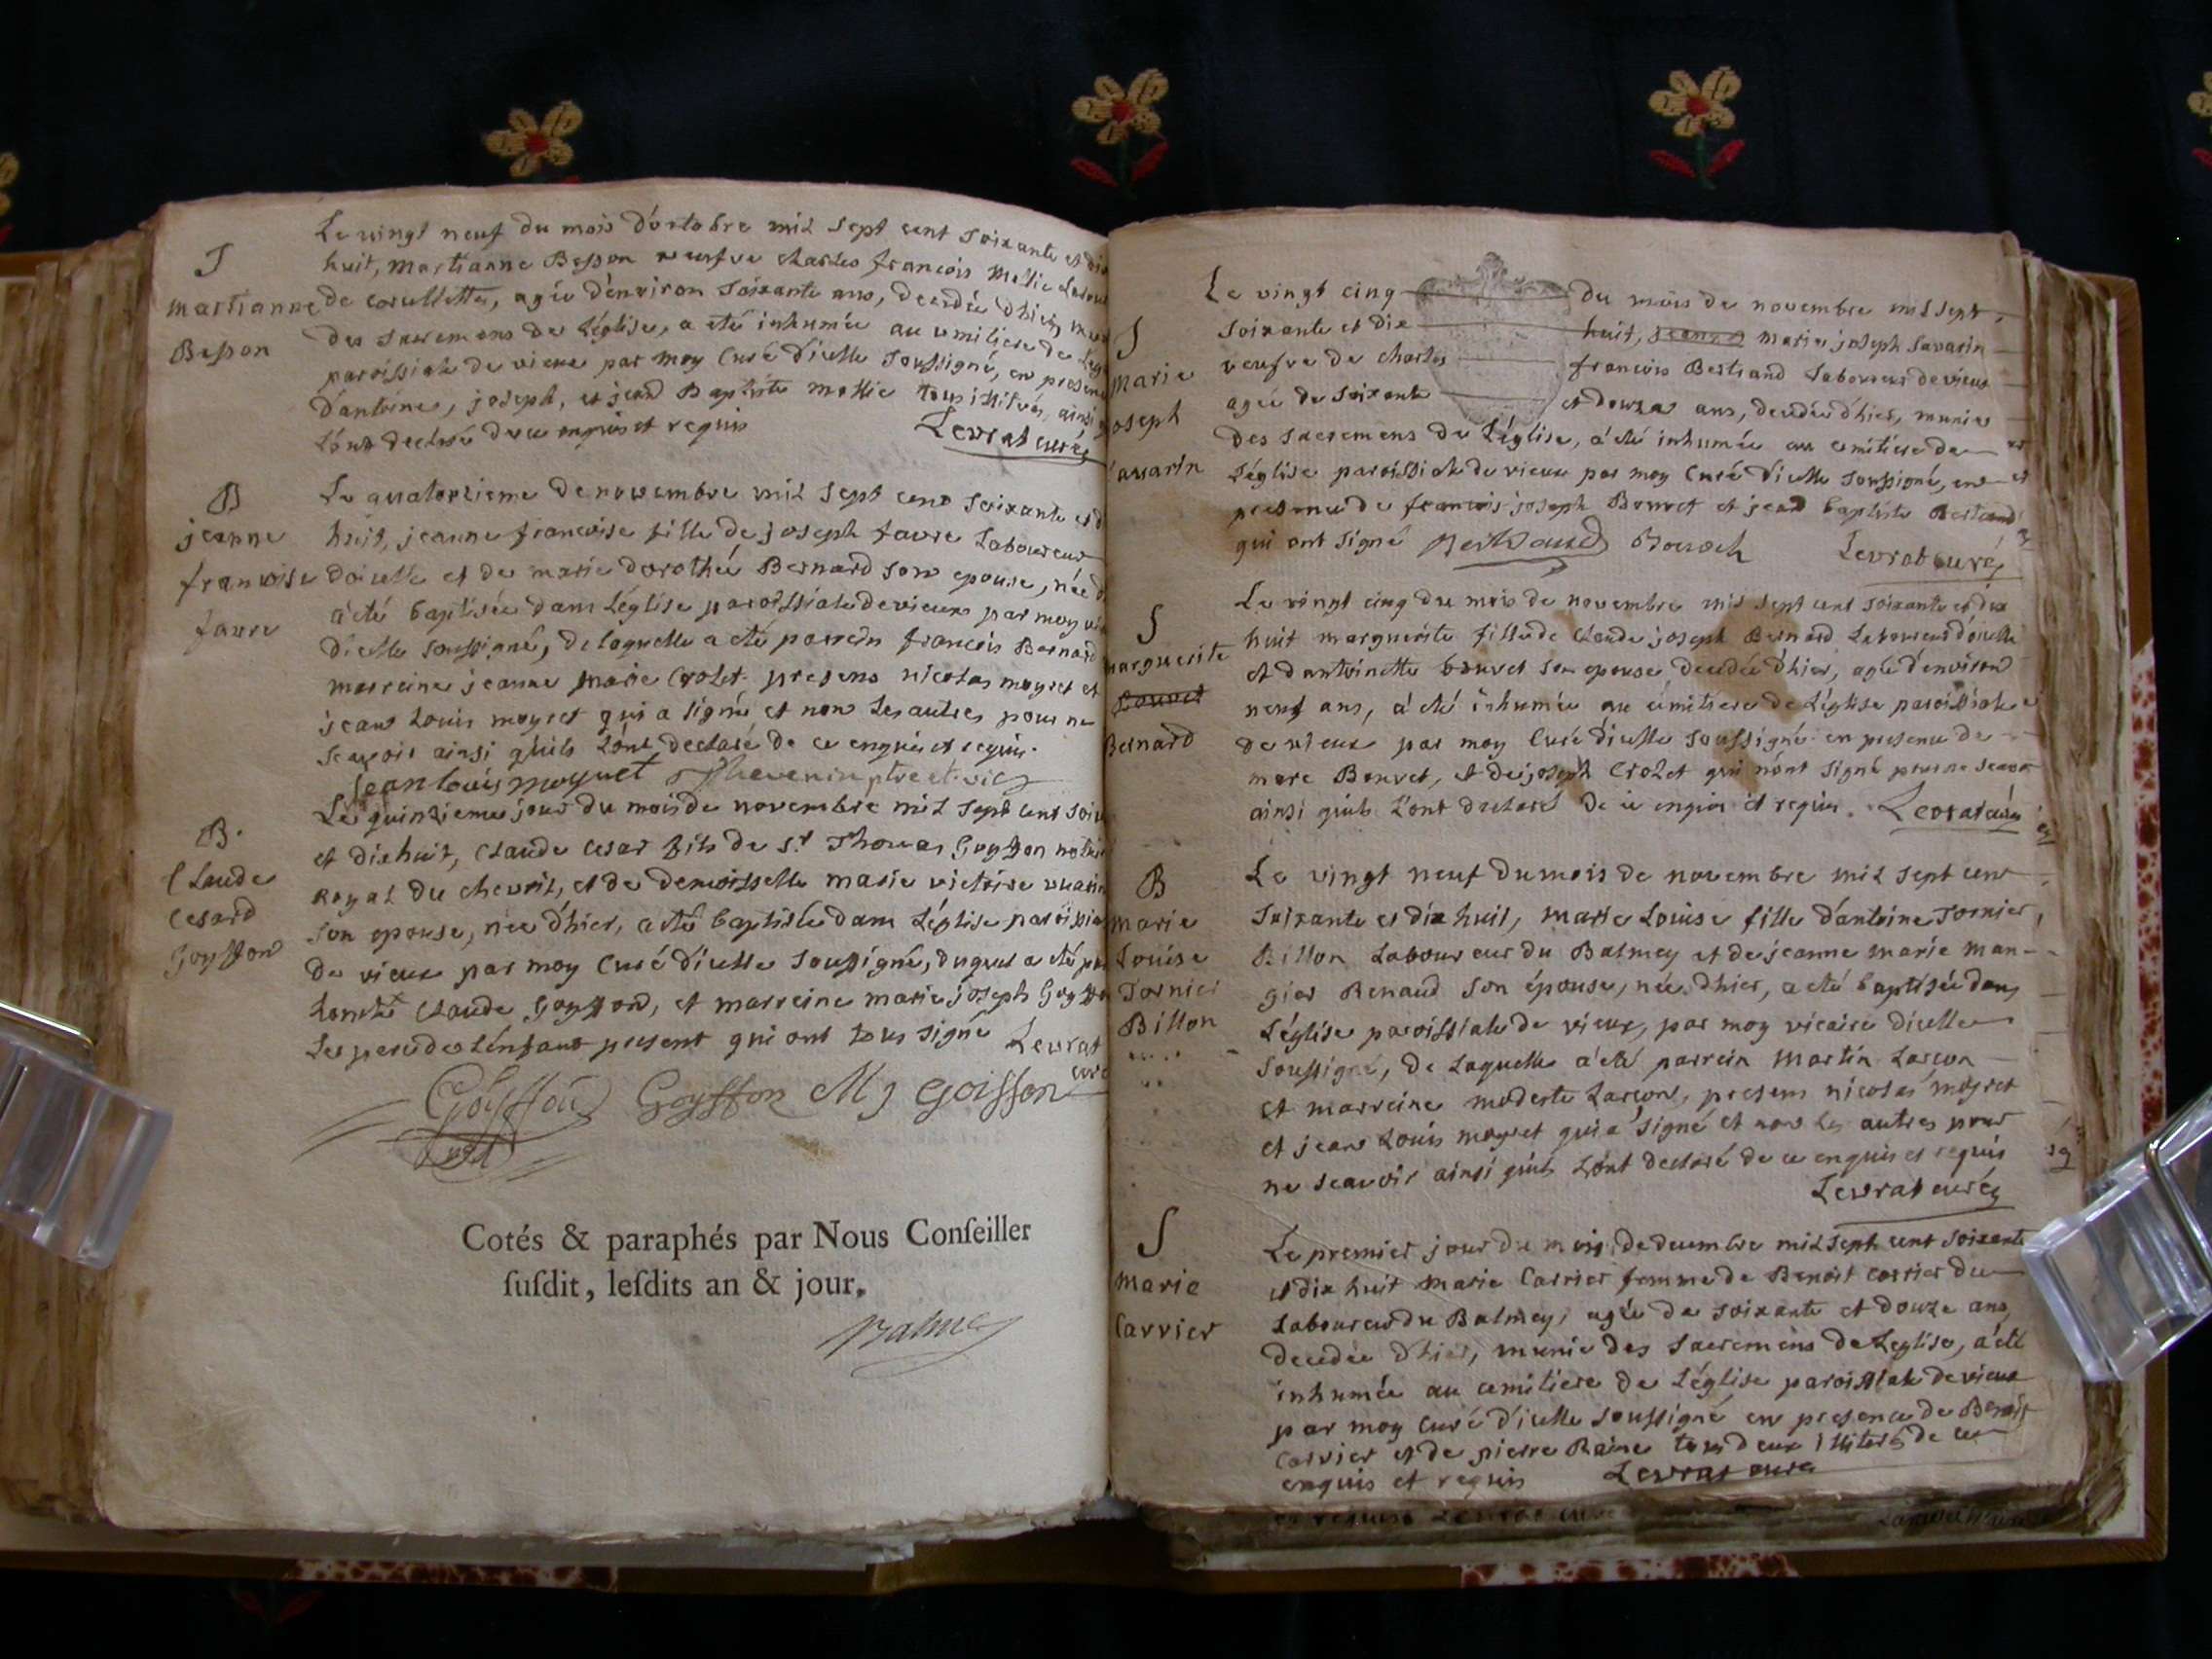 S
Martianne
Besson
Le vingt neuf du mois d'octobre mil sept cent soixante et dix
huit, Martianne Besson veufve charles francois Mollie
de corcellettes, agée d'environ soixante ans, decedée d'hier,
des sacremens de l'église, a eté inhumée au cimitiere de
paroissiale de vieux par moy Curé d'icelle soussigné, en presence
d'antoine, joseph, et jean Baptiste mollie tous illitrés, ainsi
l'ont declaré de ce enquis et requis
Levrat curé
B
jeanne
francoise
favre
Le quatorzieme de novembre mil sept cent soixante et
huit, jeanne francoise fille de joseph favre Laboureur
d'icelle et de marie dorothée Bernard son epouse, née
a'été baptisée dans l'église paroissiale de vieux par moy
d'icelle soussigné, de laquelle a eté parrein francois Bernard
marreine jeanne marie Crolet presens nicolas moyret et
jean Louis moyret qui a signé et non les autres pour ne
scavoir ainsi qu'ils l'ont declaré de ce enquis et requis.
jean louis moyret Thevenin ptre et vic
B.
Claude
Cesard
Goyffon
Le quinzieme jour du mois de novembre mil sept cent
et dixhuit, Claude Cesar fils de Sr Thomas Goyffon
Royal du chevril, et de demoiselle marie victoire
son epouse, née d'hier, a eté baptisée dans l'église
de vieux par moy Curé d'icelle soussigné, duquel a eté
Claude Goyffon, et marreine marie joseph
Le pere de l'énfant present qui ont tous signé Levrat
curé
Goyffon Goyffon M J Goiffon
Cotés & paraphés par Nous Conseiller
susdit, lesdits an & jour.
Balme
S
Marie
joseph
savarin
Le vingt cinq du mois de novembre mil sept
soixante et dix huit, jeanne marie joseph savarin
veufve de charles francois Bertrand Laboureur de vieux
agée de soixante et douze ans, decedée d'hier, munie
des sacremens de l'église, a'eté inhumée au cimitiere de
l'église paroissiale de vieux par moy Curé d'icelle soussigné, en
presence de francois joseph Bouvet et jean baptiste Bertrand
qui ont signé Bertrand Bouvet Levrat curé
S
Marguerite
Bouvet
Bernard
Le vingt cinq du mois de novembre mil sept cent soixante et dix
huit marguerite fille de Claude joseph Bernard Laboureur d'icelle
et d'antoinette bouvet son epouse, decedée d'hier, agée d'environ
neuf ans, a'eté inhumée au cimitiere de l'église paroissiale
de vieux par moy Curé d'icelle soussigné en presence de
marc Bouvet, et de joseph Crolet qui n'ont signé pour ne scavoir
ainsi qu'ils l'ont declaré de ce enquis et requis. Levrat curé
B
Marie
Louise
Tornier
Billon
Le vingt neuf du mois de novembre mil sept cent
soixante et dix huit, marie Louise fille d'antoine Tornier,
Billon Laboureur du Balmey et de jeanne marie Man-
gier Renaud son épouse, née d'hier, a eté baptisée dans
l'église paroissiale de vieux, par moy vicaire d'icelle
soussigné, de laquelle a'eté parrein Martin Larçon
et marreine modeste Larçon, presens nicolas moyret
et jean Louis moyret qui a signé et non les autres pour
ne scavoir ainsi qu'ils l'ont declaré de ce enquis et requis
Levrat curé
S
Marie
Carrier
Le premier jour du mois de decembre mil sept cent soixante
et dix huit Marie Carrier femme de Benoit carrier du
Laboureur du Balmey, agée de soixante et douze ans,
decedée d'hier, munie des sacremens de l'eglise, a'eté
inhumée au cemitiere de l'église paroissiale de vieux
par moy curé d'icelle soussigné en presence de Benoit
Carrier et de pierre Raine tous deux illiterés de ce
enquis et requis Levrat curé